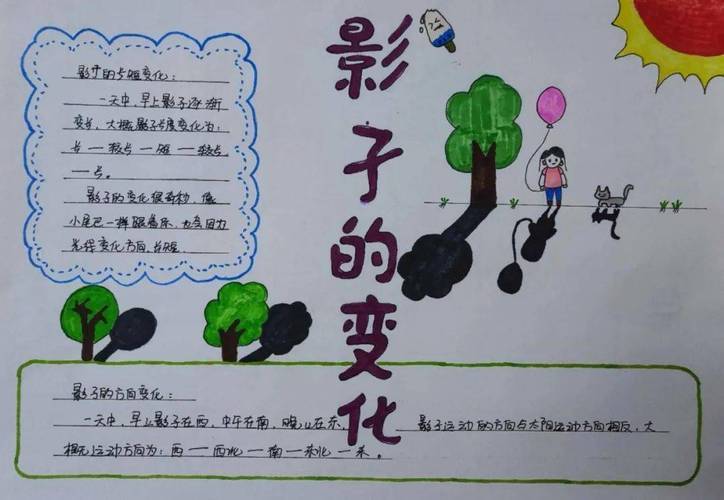 影子的变化
影子的长短变化：
一天中，早上影子逐渐
变长，大概影子长度变化为：
长一较点一短一较点
一点。
影子的变化很奇妙，像
小尾巴一样跟着你，也会因为
光线变化方向，长短
影子的方向变化：
一天中，早上影子在西，中午在南，晚上在东，影子运动的方向与太阳运动方向相反，大
概运动方向为：西一西北一南一东北一东。